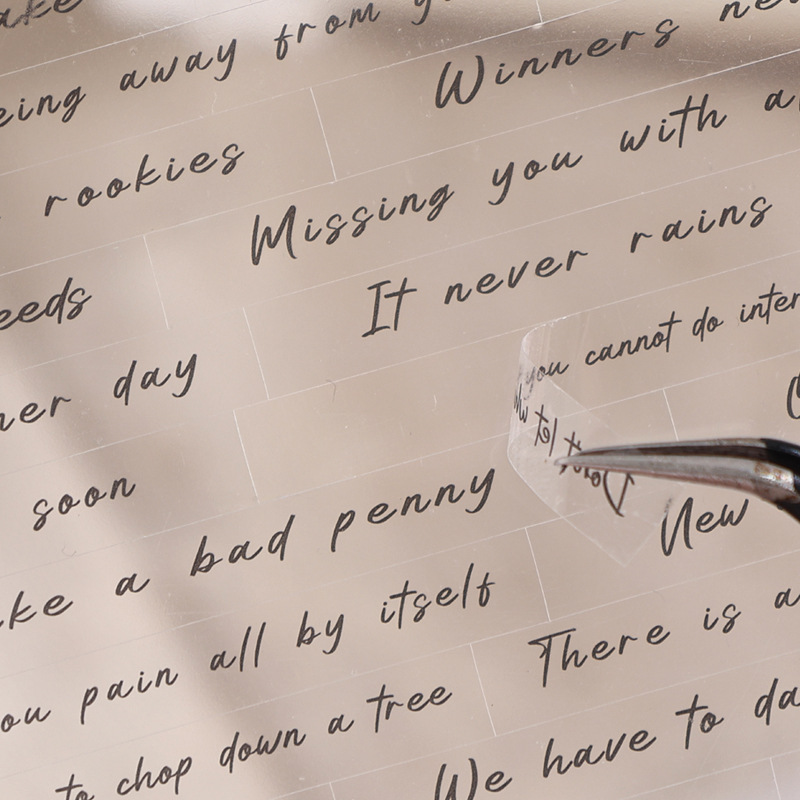 ake
eing away from
Winners
rookies
Missing you with
eeds
It never rains
her day
you cannot do inter
Don't let wh
soon
ke a bad penny
New
ou pain all by itself
There is a
to chop down a tree
We have to da